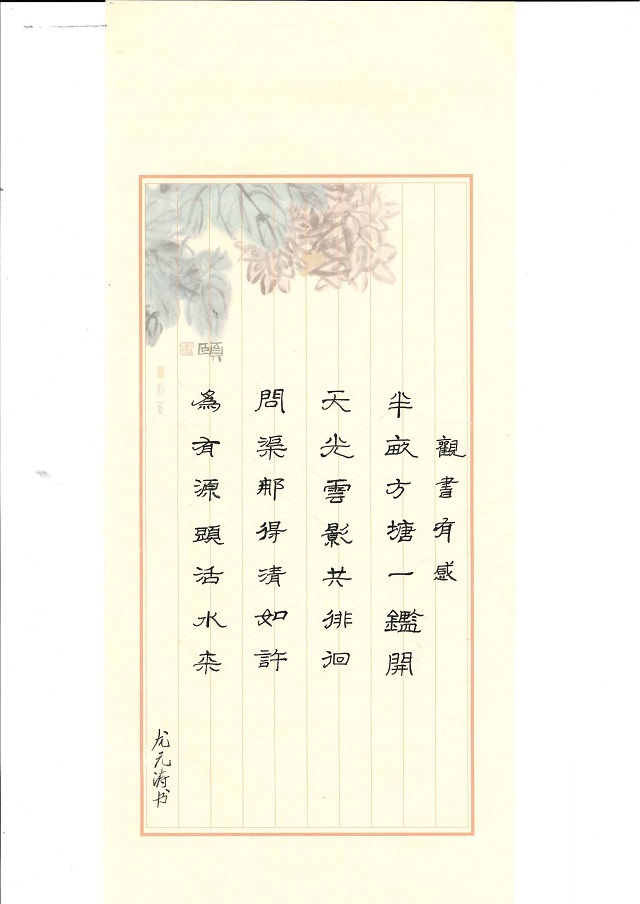 觀書有感
半畝方塘一鑑開
天光雲影共徘徊
問渠那得清如許
為有源頭活水来
龙元涛书
頤